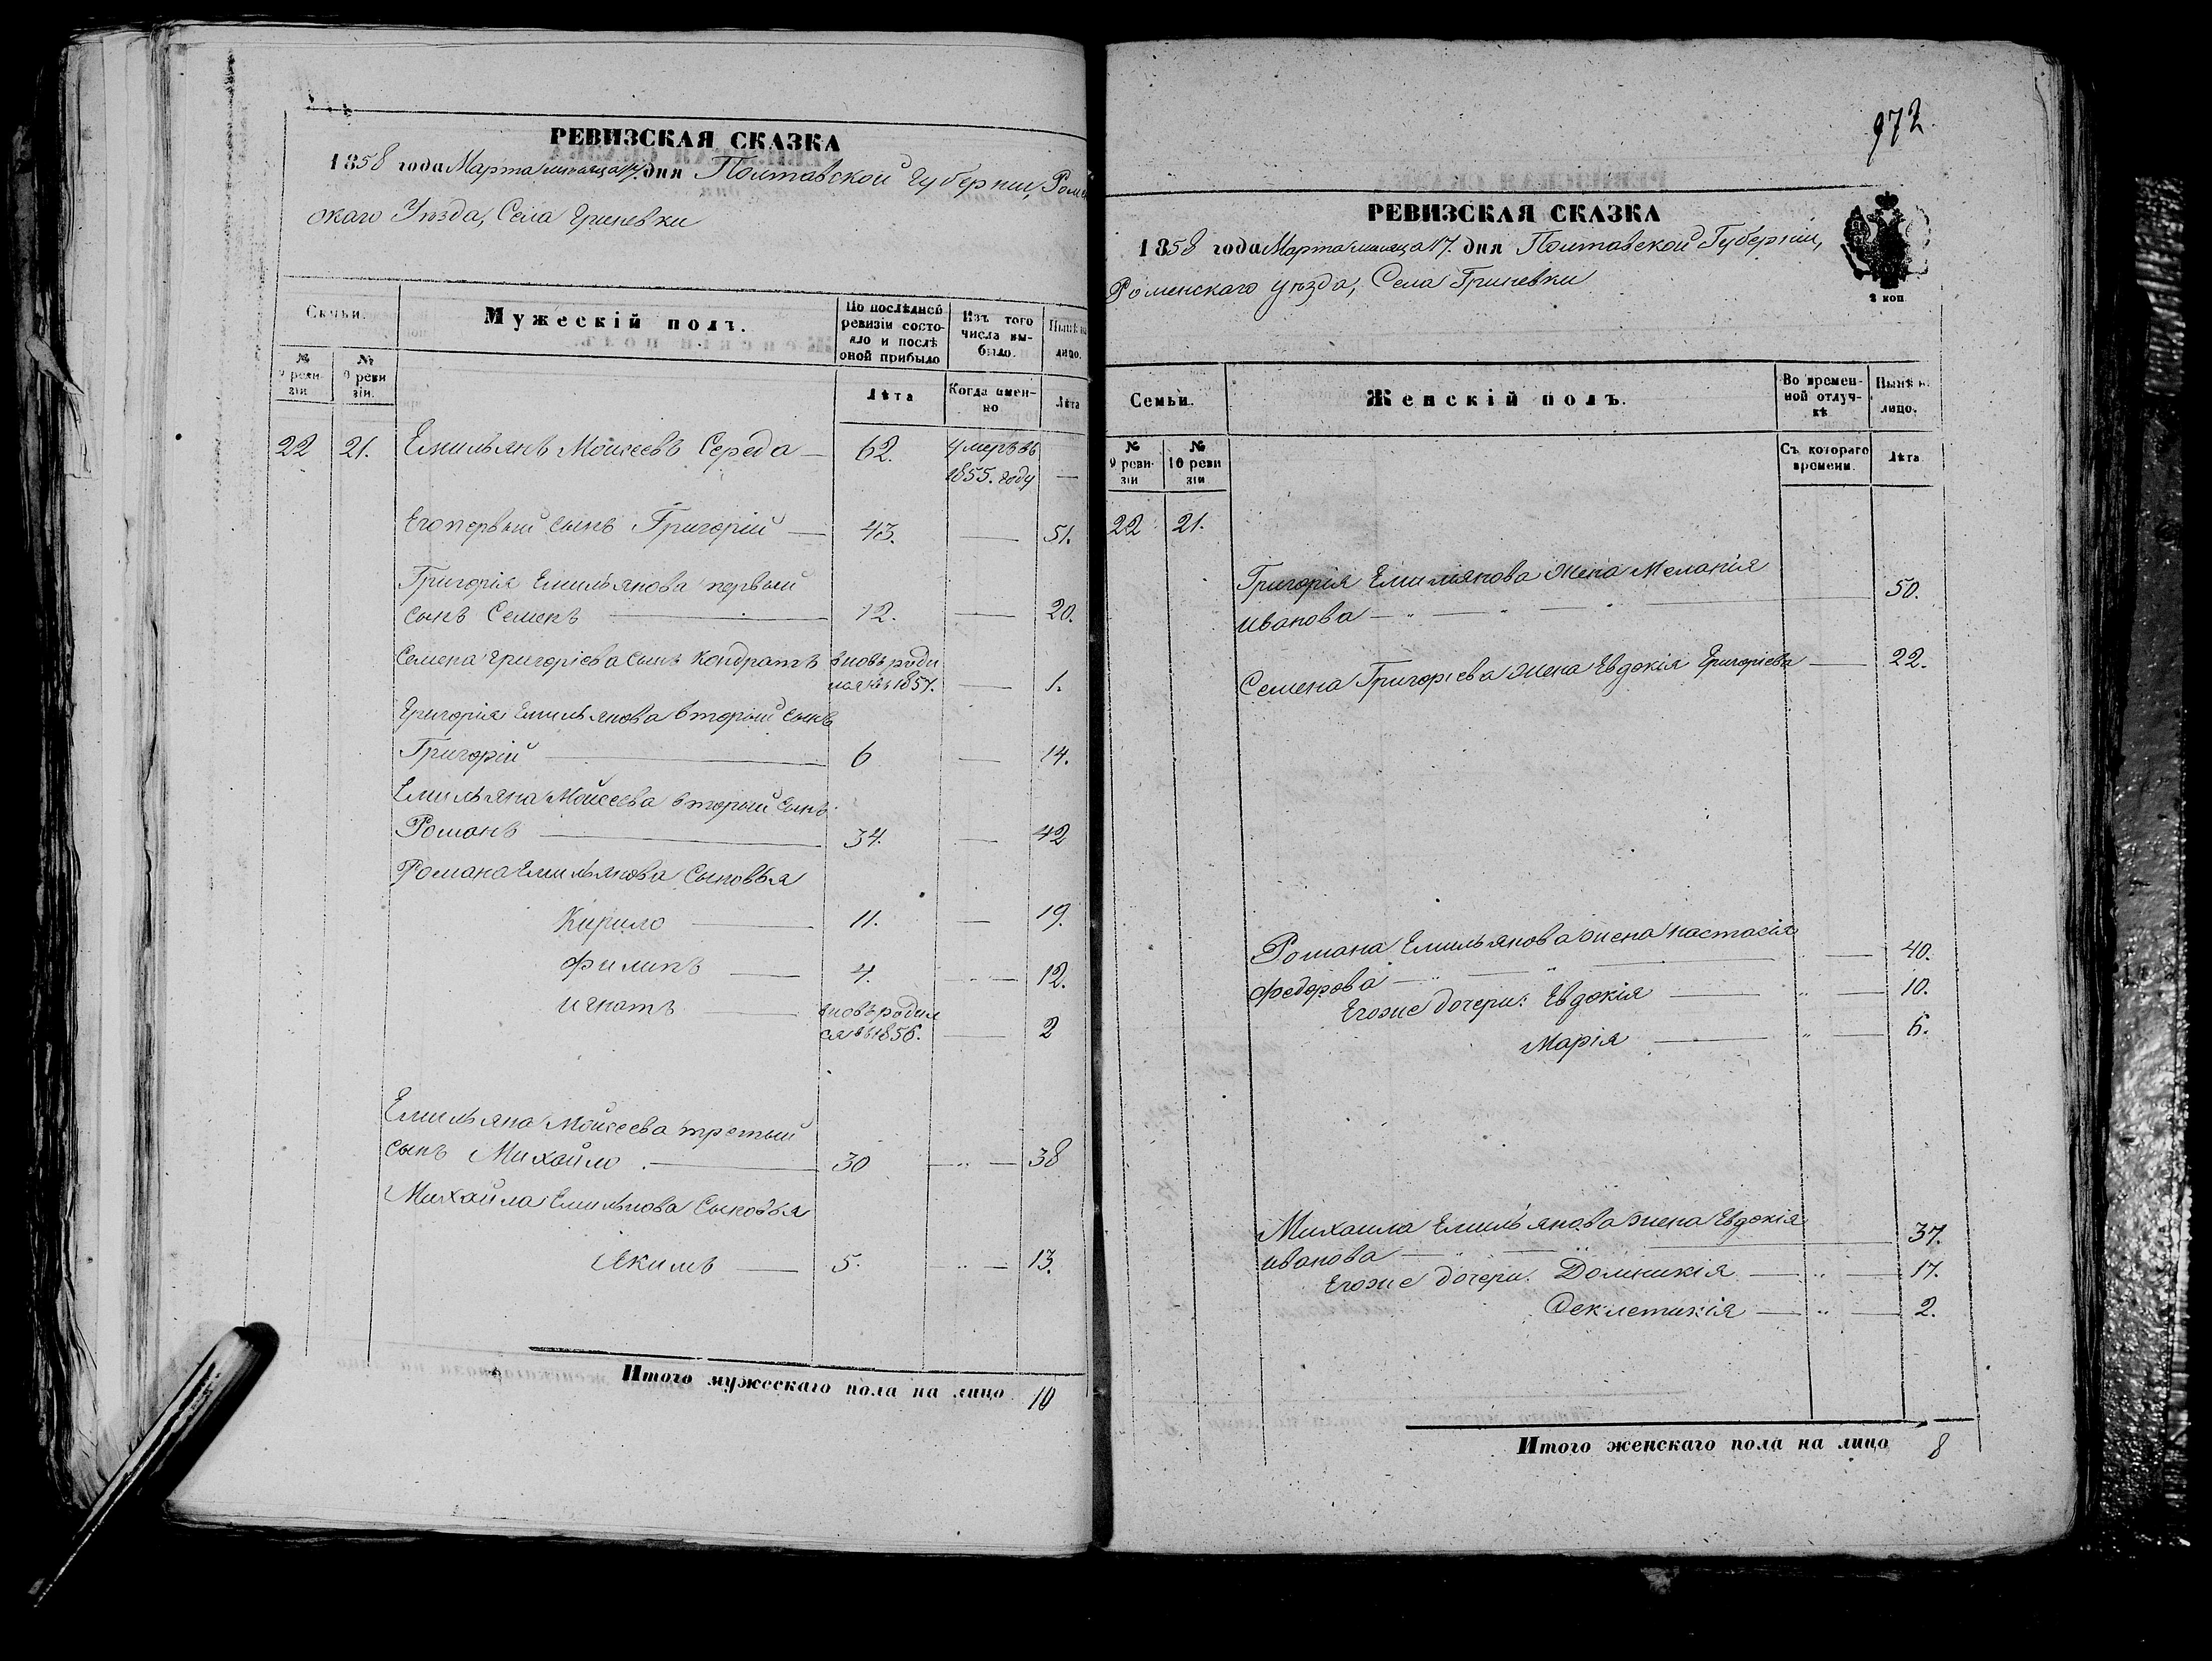 РЕВИЗСКАЯ СКАЗКА
1858 года Марта месяца 17. дня Полтавской Губерніи, Роме
скаго Уѣзда, Села Гриневки
Семьи.
Мужескій полъ.
По послѣдней ревизіи состояло и послѣ оной прибыло
Изъ того числа выбыло.
Нынѣ на лицо.
№ 9 ревизіи
№ 10 ревизіи.
Лѣта
Когда именно
Лѣта
22 21. Емильянъ Моисеевъ Середа — 62. умеръ въ
1855. году —
Его первый сынъ Григорій — 43. — 51.
Григорія Емильянова первый
сынъ Семенъ — 12. — 20.
Семена Григоріева сынъ Кондратъ вновь роди
лся въ 1857. — 1.
Григорія Емильянова вторый сынъ
Григорій — 6 — 14.
Емильяна Мойсеева вторый сынъ
Романъ — 34. — 42
Романа Емильянова Сыновья
Кирило — 11. — 19.
Филипъ — 4. — 12.
Игнатъ — вновь родил
ся въ 1856. — 2
Емильяна Мойсеева третый
сынъ Михайло — 30 — " — 38
Михайла Емильнова Сыновья
Якимъ — 5. — " — 13.
Итого мужескаго пола на лицо 10
972.
РЕВИЗСКАЯ СКАЗКА
2 коп
1858 года Марта месяца 17. дня Полтавской Губерніи,
Роменскаго уѣзда, Села Гриневки
Семьи.
Женскій полъ.
Во временной отлучкѣ
Нынѣ н. лицо.
№ 9 ревизіи
№ 10 ревизіи
Съ котораго времени.
Лѣта
22 21.
Григорія Емилянова жена Меланія
Иванова — " — " — " — 50.
Семена Григоріева жена Евдокія Григоріева — 22.
Романа Емильянова жена Настасія
Федорова — " — " — " — 40.
Егоже дочери: Евдокія — " — 10.
Марія — " — 6.
Михаила Емильянова жена Евдокія
Иванова — " — " — 37.
Егоже дочери: Домникія — " — 17.
Феклетикія — " — 2.
Итого женскаго пола на лицо 8